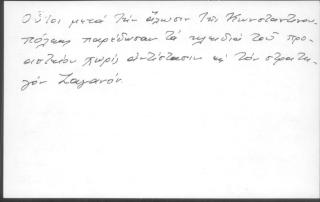 Οὗτοι μετά τήν ἅλωσιν τῆς Κωνσταντινου-
πόλεως παρέδωσαν τά κλειδιά τοῦ προ-
αστείου χωρίς ἀντίστασιν εἰς τόν στρατη-
γόν Ζαγανόν.